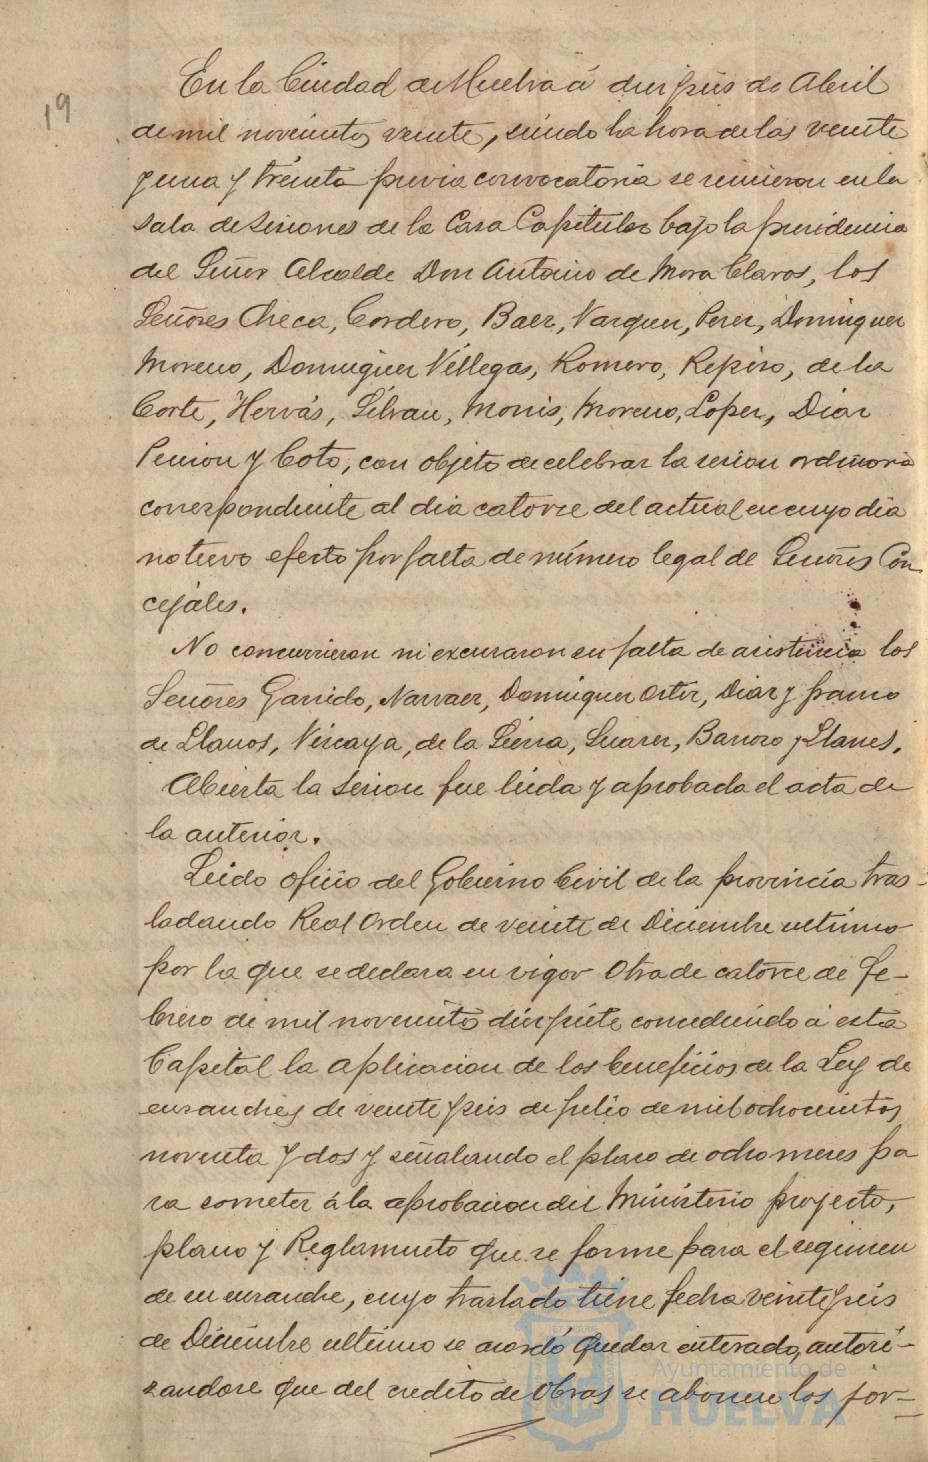 19
En la Ciudad de Huelva á diez y seis de Abril
de mil novecientos veinte, siendo la hora de las veinte
y una y treinta previa convocatoria se reunieron en la
Sala de Sesiones de la Casa Capitular bajo la presidencia
del Señor Alcalde Don Antonio de Mora Claros, los
Señores Checa, Cordero, Baez, Vazquez, Perez, Dominguez
Moreno, Dominguez Villegas, Romero, Repiso, de la
Corte, Hervás, Silvan, Monis, Moreno, Lopez, Diaz
Pension y Coto, con objeto de celebrar la sesion ordinaria
correspondiente al dia catorce del actual en cuyo dia
no tuvo efecto por falta de número legal de Señores Con
cejales.
No concurrieron ni excusaron su falta de asistencia los
Señores Garrido, Narvaez, Dominguez Ortiz, Diaz y Franco
de Llanos, Vizcaya, de la Sierra, Suarez, Barroso y Llanes.
Abierta la sesion fue leida y aprobada el acta de
la anterior.
Leido oficio del Gobierno Civil de la provincia tras-
ladando Real Orden de veinte de Diciembre ultimo
por la que se declara en vigor otra de catorce de Fe-
brero de mil novecientos diez y siete concediendo á esta
Capital la aplicacion de los beneficios de la Ley de
ensanches de veinte y seis de Julio de mil ochocientos
noventa y dos y señalando el plazo de ocho meses pa
ra someter á la aprobacion del Ministerio proyecto,
plano y Reglamento que se forme para el regimen
de su ensanche, cuyo traslado tiene fecha veinte y seis
de Diciembre ultimo se acordó quedar enterado, autori-
zandose que del credito de Obras se abonen los jor-
Ayuntamiento de
HUELVA